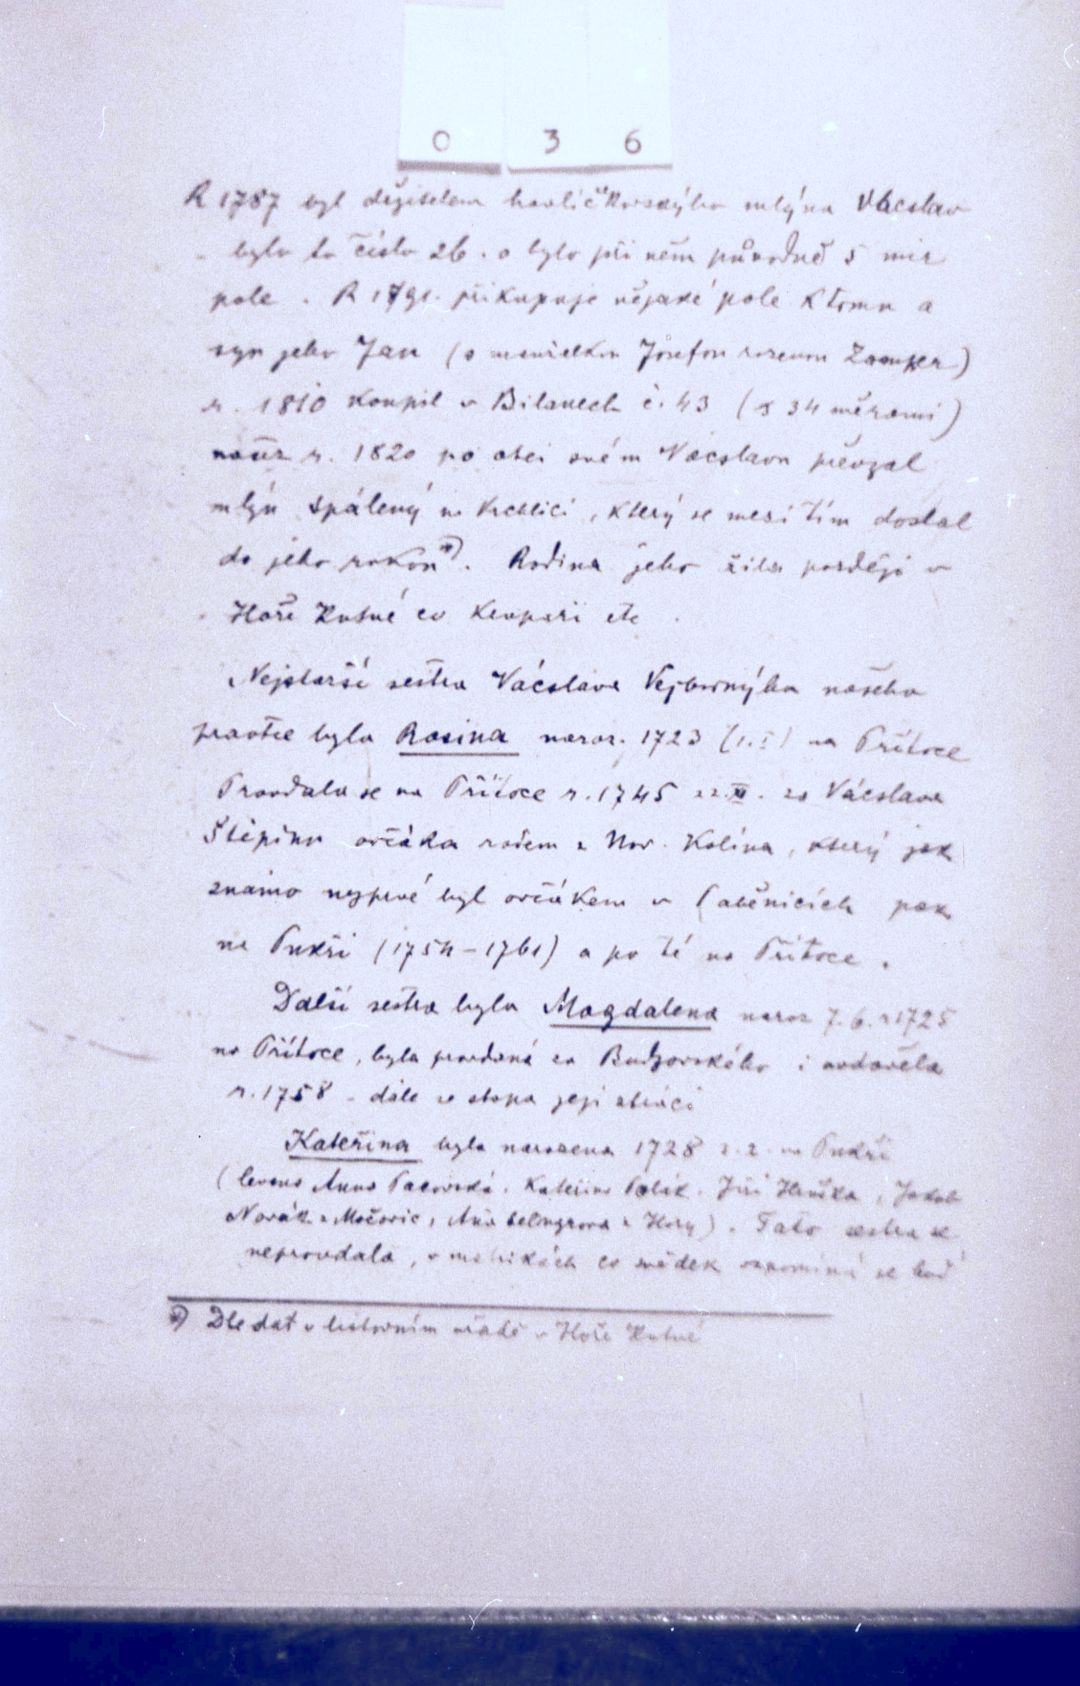 0 3 6
R 1787 byl držitelem havlíčkovského mlýna Václav
bylo to číslo 26. a bylo při něm původně 5 mír
pole. R 1791. přikupuje nějaké pole k tomu a
syn jeho Jan (s manželkou Josefou rozenou)
r. 1810 koupil v Bilanech č. 43 (s 34 měrami)
r. 1820 po otci svém Václavu převzal
mlýn Spálený na Vrchlici, který se mezi tím dostal
do jeho rukou *). Rodina jeho žila později v
Hoře Kutné co kupaři etc.
Nejstarší sestra Václava Vejborného našeho
praotce byla Rosina naroz. 1723 (1.I) na Přítoce
Provdala se na Přítoce r. 1745 22.XI. za Václava
Štěpina ovčáka rodem z Nov. Kolína, který jak
známo nejprvé byl ovčákem v pak
na Pukši (1754-1761) a po té na Přítoce.
Další sestra byla Magdalena naroz 7.6. r 1725
na Přítoce, byla provdaná za i ovdověla
r. 1758 - dále se stopa její ztrácí
Kateřina byla narozena 1728 2.2. na Pukši
(levans Anna Kateřina Polák. Jiří Hruška, Jakub
Novák z Močovic, z Hory). Tato sestra se
neprovdala, v matrikách co svědek vzpomíná se buď
*) Dle dat v listovním úřadě v Hoře Kutné